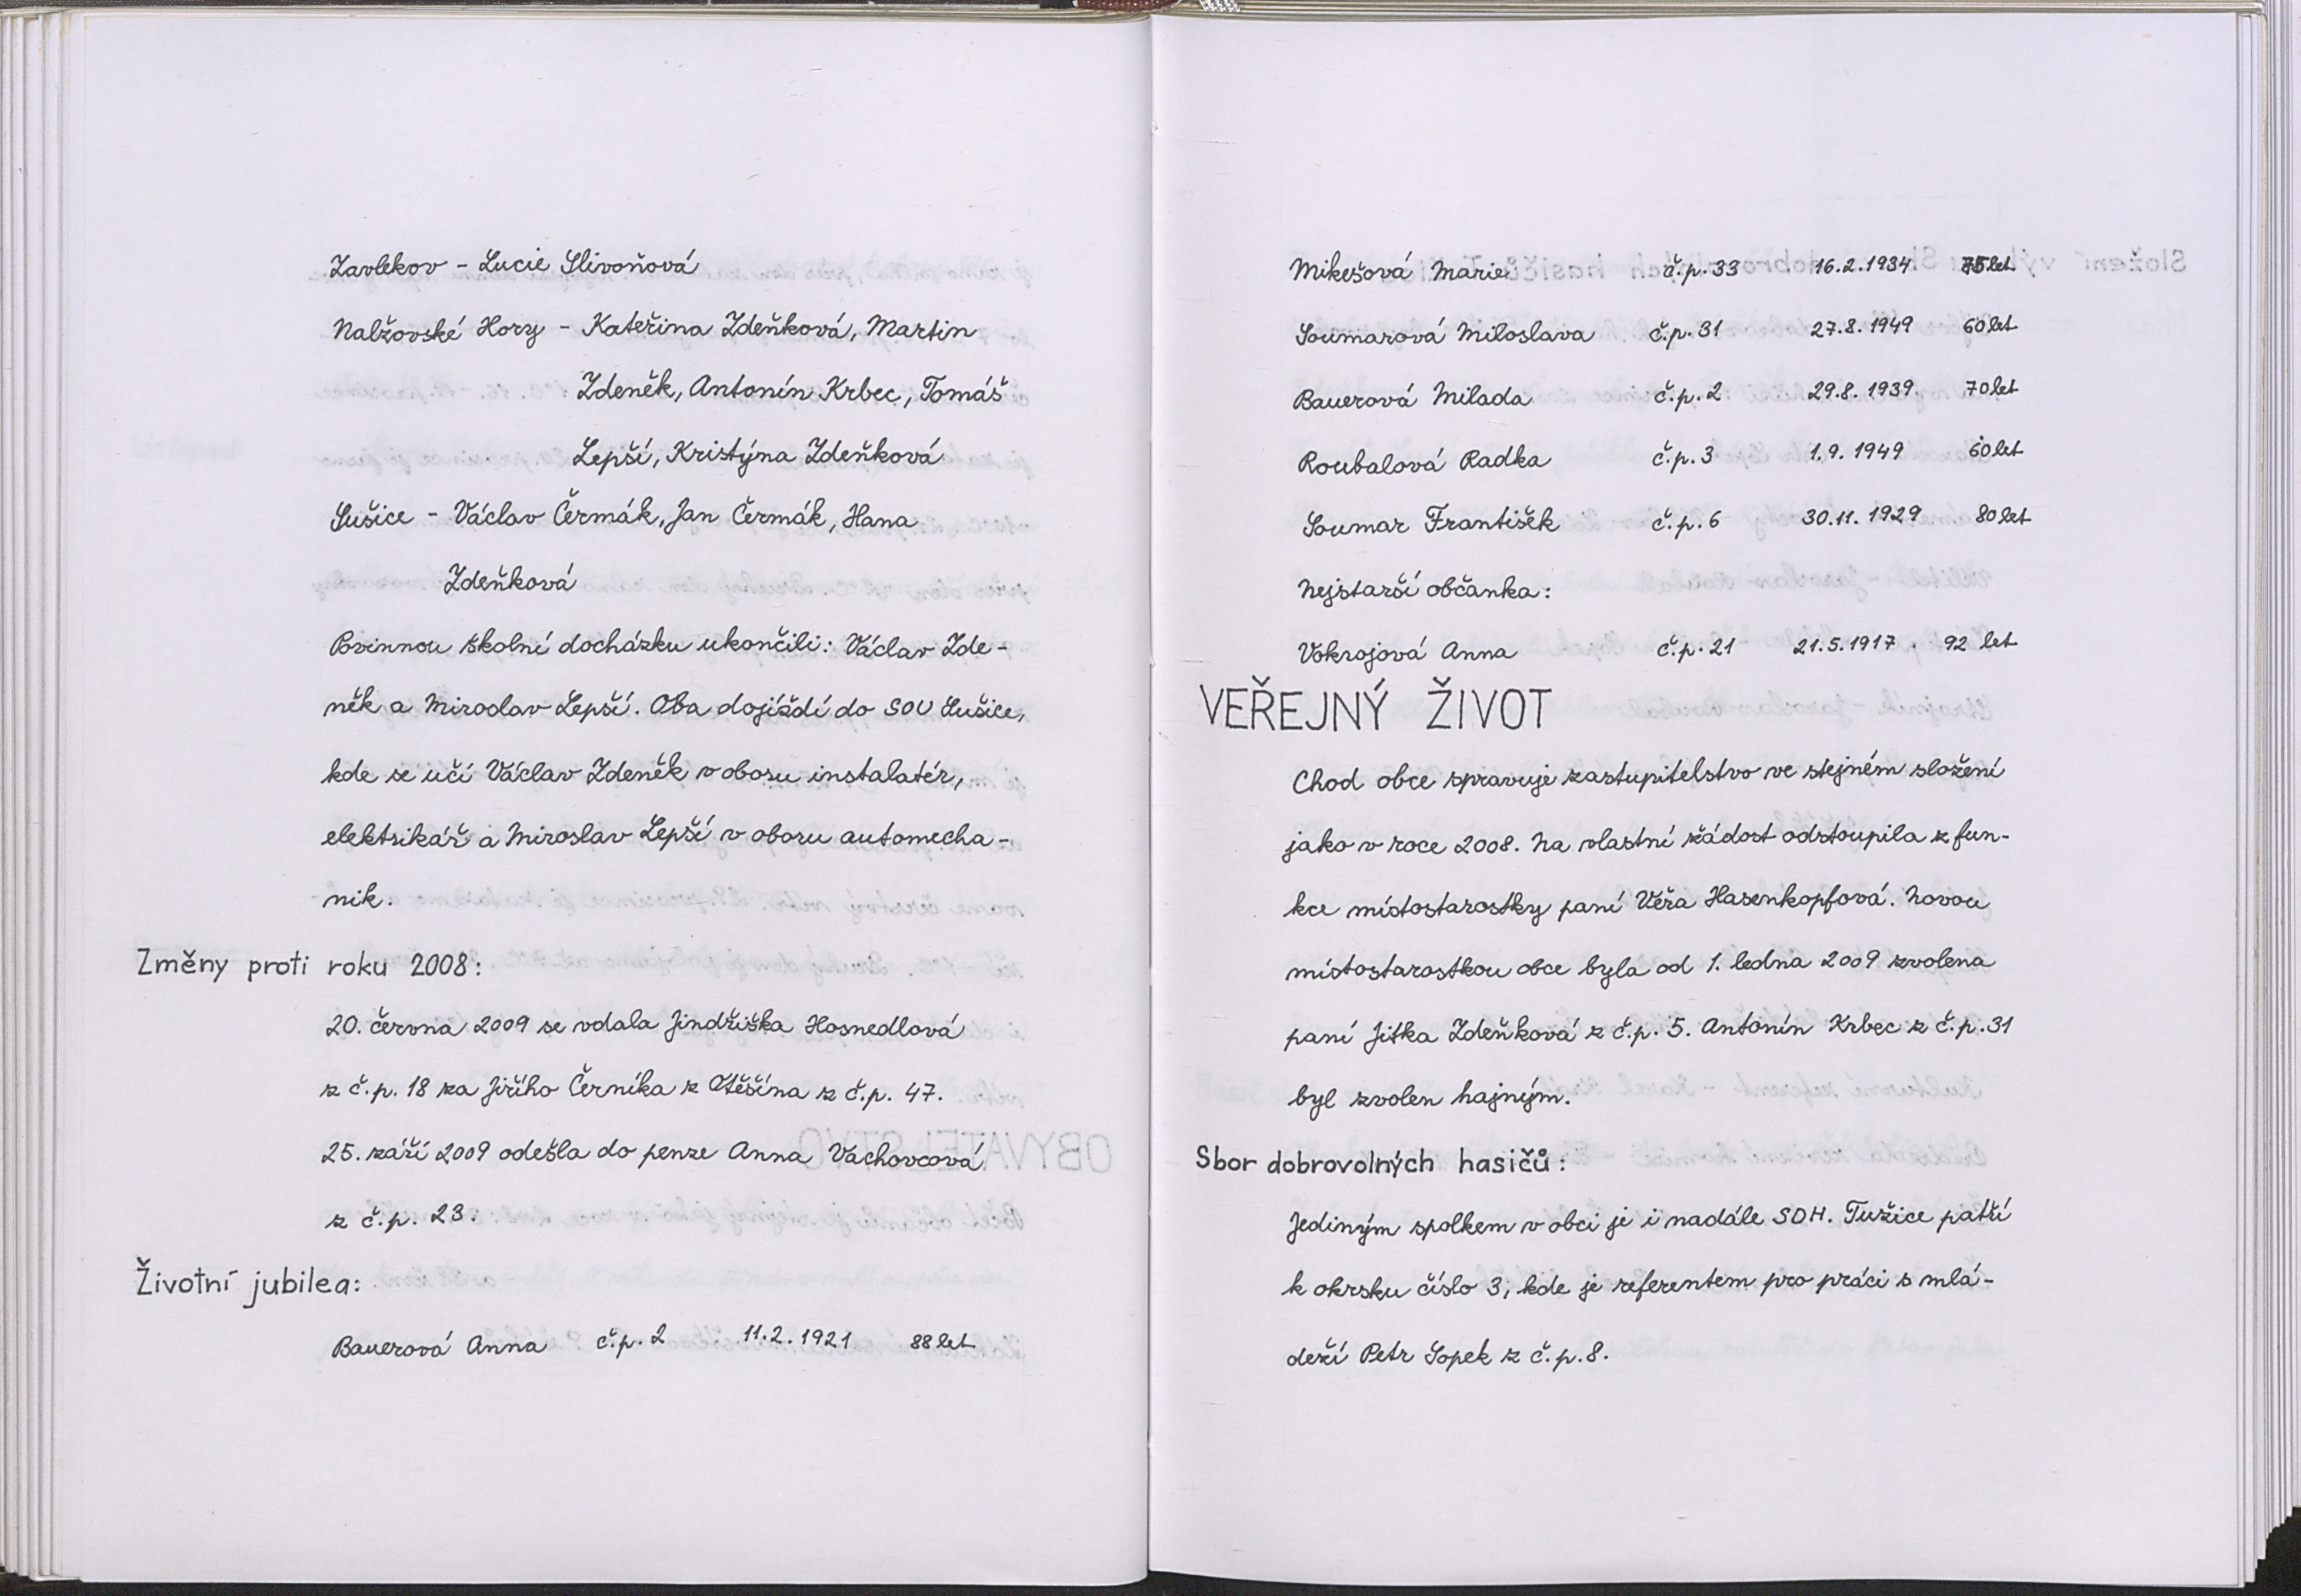 Zavlekov - Lucie Slivoňová
Nalžovské Hory - Kateřina Zdeňková, Martin
Zdeněk, Antonín Krbec, Tomáš
Lepší, Kristýna Zdeňková
Sušice - Václav Čermák, Jan Čermák, Hana
Zdeňková
Povinnou školní docházku ukončili: Václav Zde-
něk a Miroslav Lepší. Oba dojíždí do SOU Sušice,
kde se učí Václav Zdeněk v oboru instalatér,
elektrikář a Miroslav Lepší v oboru automecha-
nik.
Změny proti roku 2008:
20. června 2009 se vdala Jindřiška Hosnedlová
z č.p. 18 za Jiřího Černíka z Otěšína z č.p. 47.
25. září 2009 odešla do penze Anna Vachovcová
z č.p. 23.
Životní jubilea:
Bauerová Anna č.p. 2 11.2.1921 88 let
Mikešová Marie č.p. 33 16.2.1934 75 let
Soumarová Miloslava č.p. 31 27.8.1949 60 let
Bauerová Milada č.p. 2 29.8.1939 70 let
Roubalová Radka č.p. 3 1.9.1949 60 let
Soumar František č.p. 6 30.11.1929 80 let
Nejstarší občanka:
Vokrojová Anna č.p. 21 21.5.1917 92 let
VEŘEJNÝ ŽIVOT
Chod obce spravuje zastupitelstvo ve stejném složení
jako v roce 2008. Na vlastní žádost odstoupila z fun-
kce místostarostky paní Věra Hasenkopfová. Novou
místostarostkou obce byla od 1. ledna 2009 zvolena
paní Jitka Zdeňková z č.p. 5. Antonín Krbec z č.p. 31
byl zvolen hajným.
Sbor dobrovolných hasičů:
Jediným spolkem v obci je i nadále SDH. Tužice patří
k okrsku číslo 3, kde je referentem pro práci s mlá-
deží Petr Sopek z č.p. 8.